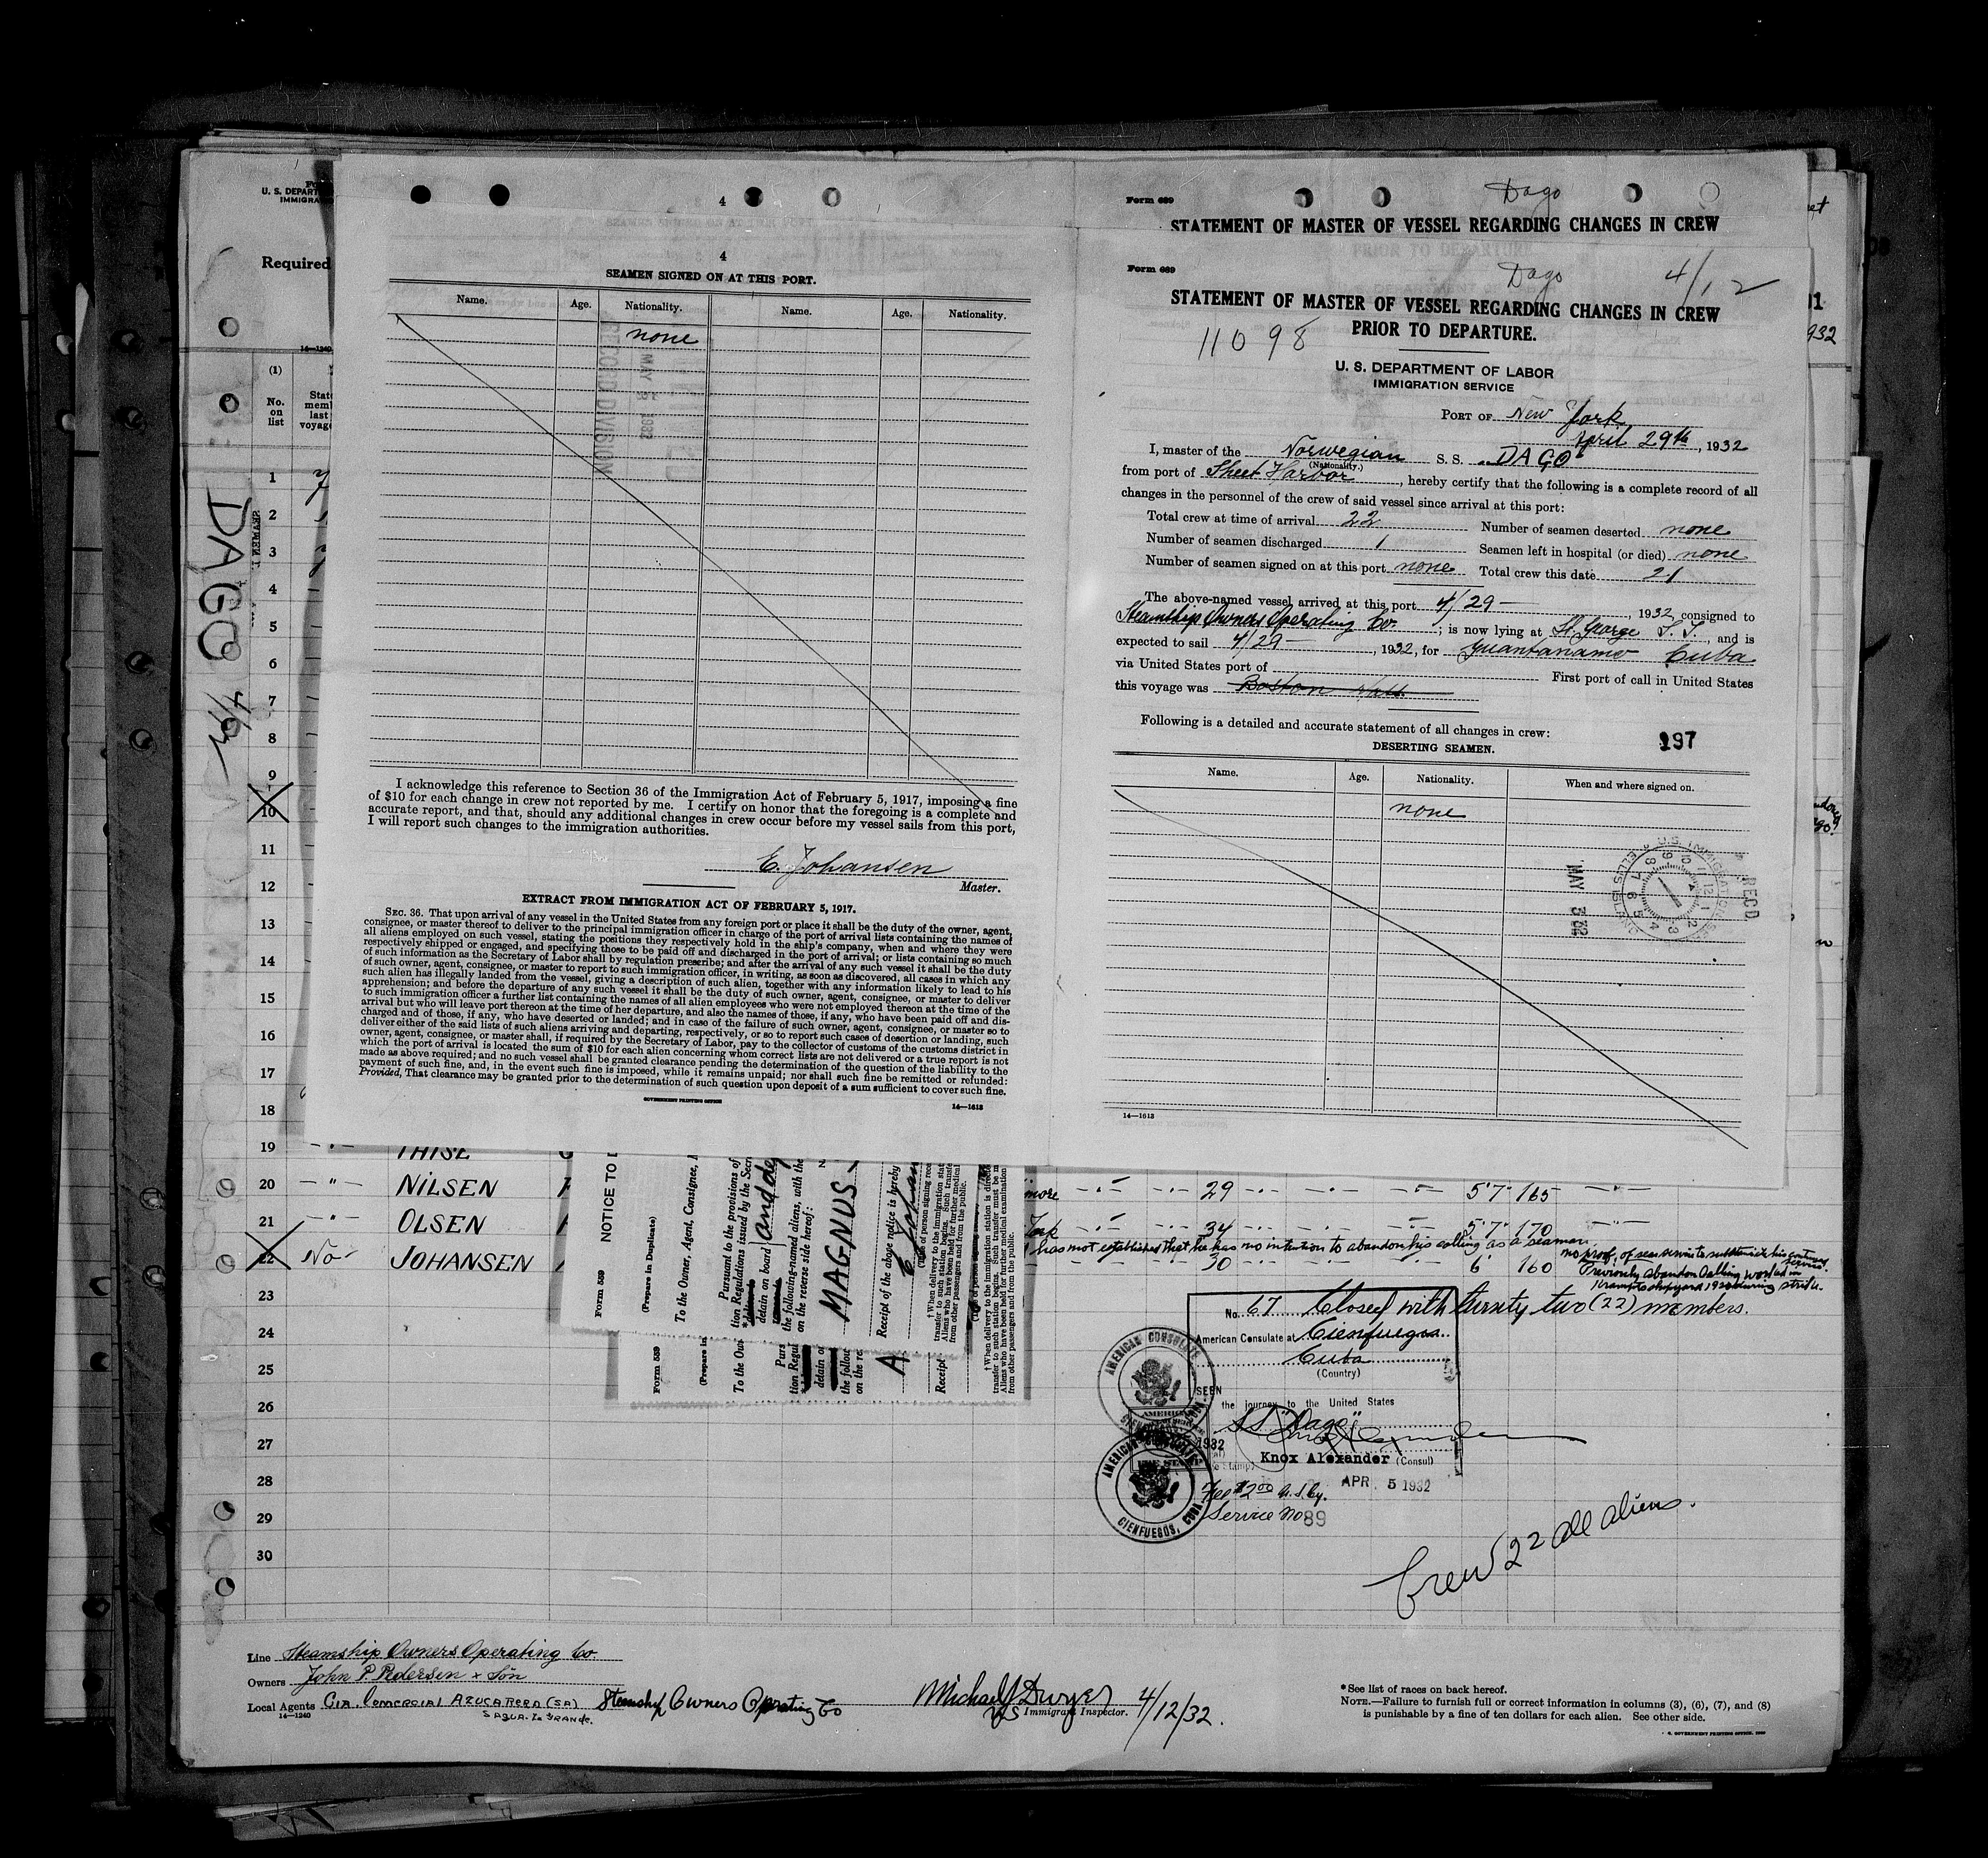 4
4
SEAMEN SIGNED ON AT THIS PORT.
Name. Age. Nationality. Name. Age. Nationality.
none
RECORD DIVISION
MAY 5 1932
I acknowledge this reference to Section 36 of the Immigration Act of February 5, 1917, imposing a fine
of $10 for each change in crew not reported by me. I certify on honor that the foregoing is a complete and
accurate report, and that, should any additional changes in crew occur before my vessel sails from this port,
I will report such changes to the immigration authorities.
E. Johansen
Master.
EXTRACT FROM IMMIGRATION ACT OF FEBRUARY 5, 1917.
SEC. 36. That upon arrival of any vessel in the United States from any foreign port or place it shall be the duty of the owner, agent,
consignee, or master thereof to deliver to the principal immigration officer in charge of the port of arrival lists containing the names of
all aliens employed on such vessel, stating the positions they respectively hold in the ship's company, when and where they were
respectively shipped or engaged, and specifying those to be paid off and discharged in the port of arrival; or lists containing so much
of such information as the Secretary of Labor shall by regulation prescribe; and after the arrival of any such vessel it shall be the duty
of such owner, agent, consignee, or master to report to such immigration officer, in writing, as soon as discovered, all cases in which any
such alien has illegally landed from the vessel, giving a description of such alien, together with any information likely to lead to his
apprehension; and before the departure of any such vessel it shall be the duty of such owner, agent, consignee, or master to deliver
to such immigration officer a further list containing the names of all alien employees who were not employed thereon at the time of the
arrival but who will leave port thereon at the time of her departure, and also the names of those, if any, who have been paid off and dis-
charged and of those, if any, who have deserted or landed; and in case of the failure of such owner, agent, consignee, or master so to
deliver either of the said lists of such aliens arriving and departing, respectively, or so to report such cases of desertion or landing, such
owner, agent, consignee, or master shall, if required by the Secretary of Labor, pay to the collector of customs of the customs district in
which the port of arrival is located the sum of $10 for each alien concerning whom correct lists are not delivered or a true report is not
made as above required; and no such vessel shall be granted clearance pending the determination of the question of the liability to the
payment of such fine, and, in the event such fine is imposed, while it remains unpaid; nor shall such fine be remitted or refunded:
Provided, That clearance may be granted prior to the determination of such question upon deposit of a sum sufficient to cover such fine.
GOVERNMENT PRINTING OFFICE
14—1613
Form 689
Dago
STATEMENT OF MASTER OF VESSEL REGARDING CHANGES IN CREW
Form 689
Dago
4/12
STATEMENT OF MASTER OF VESSEL REGARDING CHANGES IN CREW
PRIOR TO DEPARTURE.
11098
U. S. DEPARTMENT OF LABOR
IMMIGRATION SERVICE
PORT OF New York
April 29th, 1932
I, master of the Norwegian S. S. "DAGO"
(Nationality.)
from port of Sheet Harbor, hereby certify that the following is a complete record of all
changes in the personnel of the crew of said vessel since arrival at this port:
Total crew at time of arrival 22 Number of seamen deserted none
Number of seamen discharged 1 Seamen left in hospital (or died) none
Number of seamen signed on at this port none Total crew this date 21
The above-named vessel arrived at this port 4/29 —, 1932, consigned to
Steamship Owners Operating Co.; is now lying at St. George S. I., and is
expected to sail 4/29 —, 1932, for Guantanamo Cuba
via United States port of First port of call in United States
this voyage was Boston
Following is a detailed and accurate statement of all changes in crew:
DESERTING SEAMEN.
197
Name. Age. Nationality. When and where signed on.
none
REC'D
U.S. IMMIGRATION
ELLIS ISLAND
MAY 5 32
14—1613
U. S. DEPART
IMMIGRA
Required
14—1240
(1)
No. on list
State
memb
last
voyage
DAGO 4/12
1
2
3
4
5
6
7
8
9
10
11
12
13
14
15
16
17
18
19 THISE
20 —"— NILSEN 29 5'7" 165
21 —"— OLSEN York 34 5'7" 170
has not established that he has no intention to abandon his calling as a seaman.
22 No JOHANSEN 30 6 160
no proof of sea service
Previously abandon calling worked in
shipyard 1920 during strike.
23
24
25
26
27
28
29
30
Form 559
NOTICE TO D
(Prepare in Duplicate)
To the Owner, Agent, Consignee,
Pursuant to the provisions of
tion Regulations issued by the Secre
detain on board and de
the following-named aliens, with the
on the reverse side hereof:
MAGNUS
Receipt of the above notice is hereby
E Johan
(Title of person signing rece
Form 559
(Prepare in
To the Own
Purs
tion Regul
detain o
the follow
on the re
A.
Receipt
No. 67 Closed with twenty two (22) members.
American Consulate at Cienfuegos
Cuba
(Country)
SEEN
the journey to the United States
SS "Dago"
Knox Alexander (Consul)
APR 5 1932
Fee $2.00 U.S.Cy.
Service No 89
AMERICAN CONSULATE
CIENFUEGOS, CUBA
AMERICAN CONSULATE
CIENFUEGOS, CUBA
Crew 22 all aliens.
Line Steamship Owners Operating Co
Owners John P. Pedersen & Son
Local Agents Cia. Comercial Azucarera (SA) Steamship Owners Operating Co
SAGUA LA GRANDE.
14—1240
Michael J Dwyer 4/12/32.
US Immigrant Inspector.
*See list of races on back hereof.
NOTE.—Failure to furnish full or correct information in columns (3), (6), (7), and (8)
is punishable by a fine of ten dollars for each alien. See other side.
U. S. GOVERNMENT PRINTING OFFICE